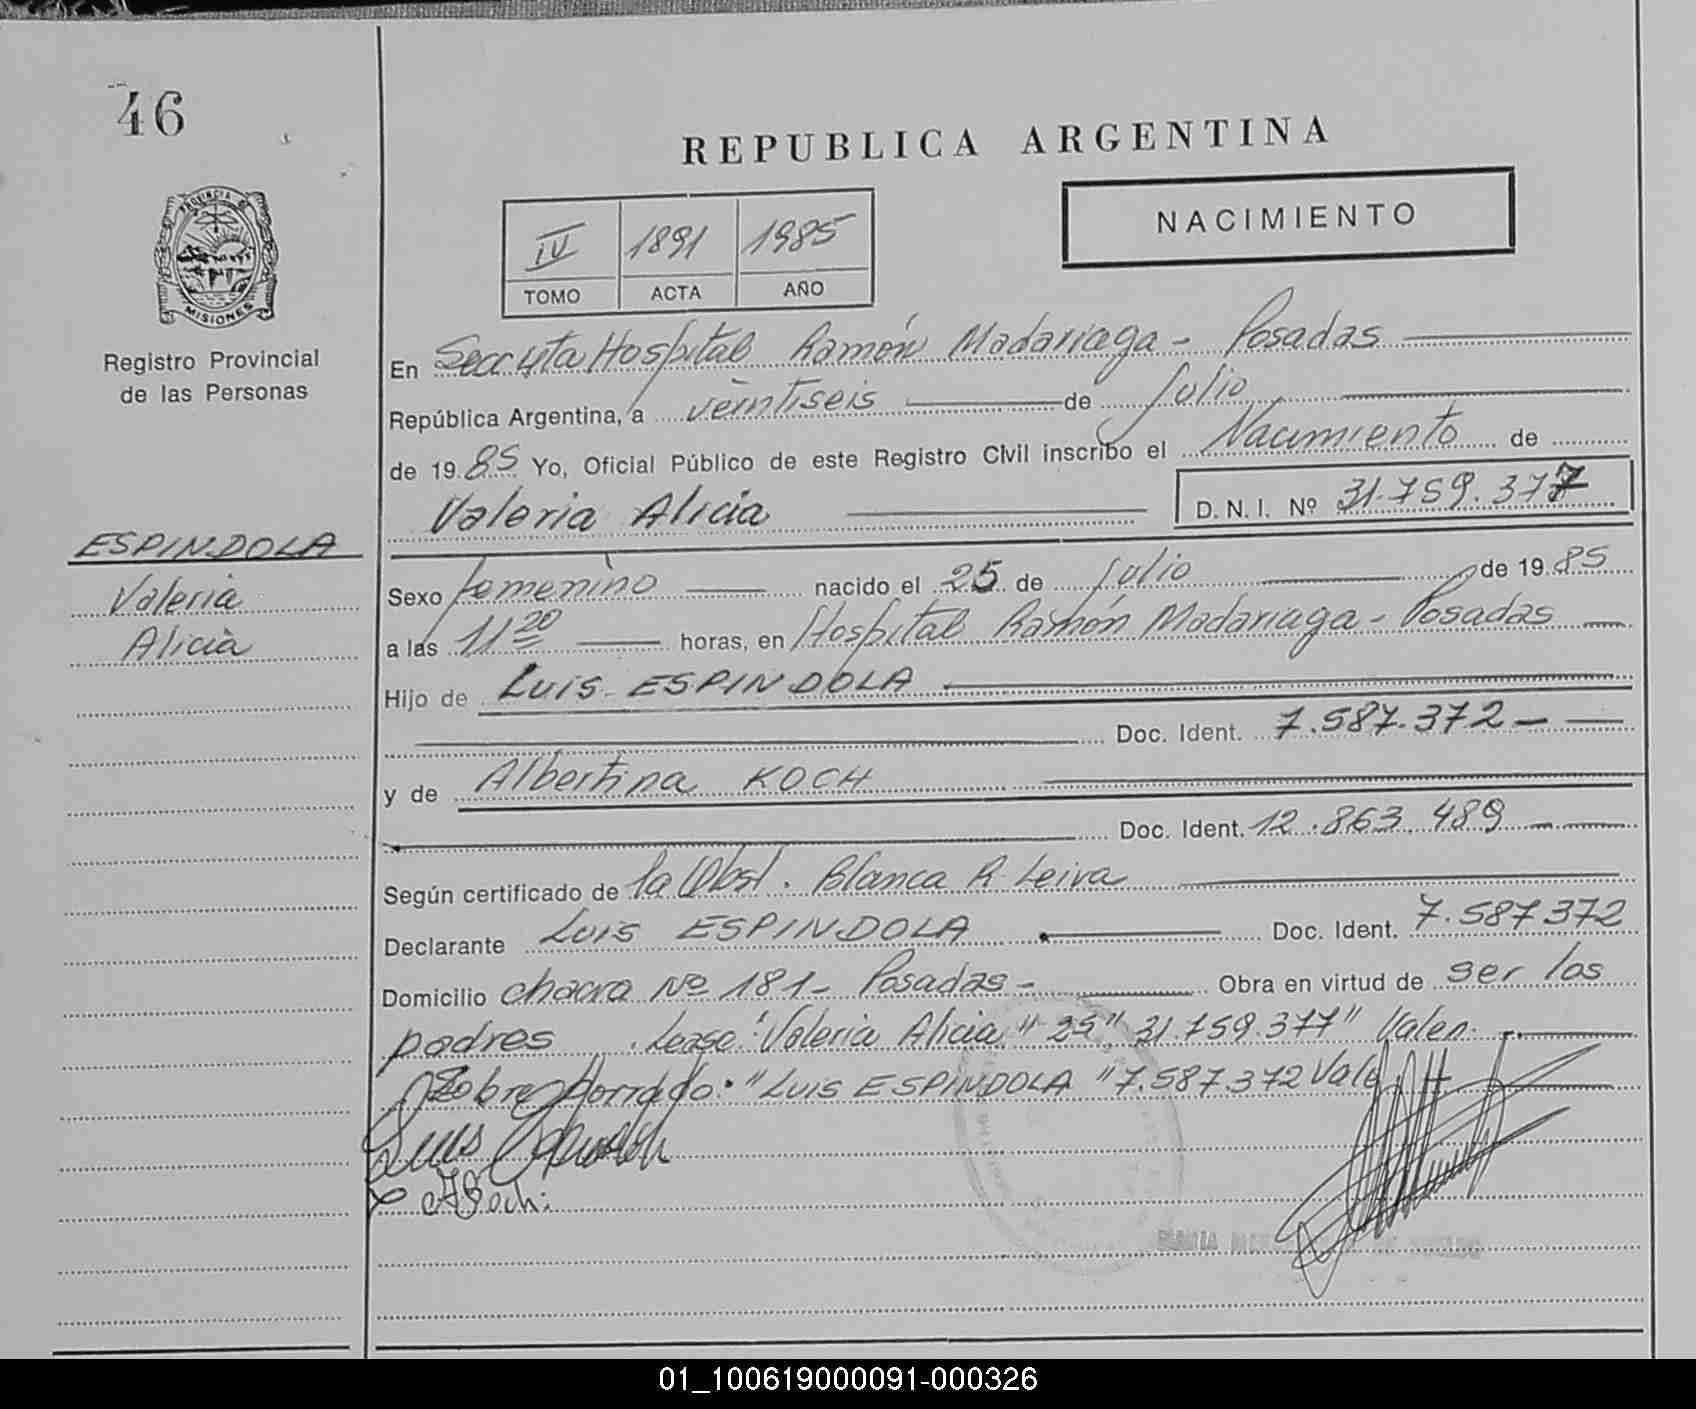 46
REPUBLICA ARGENTINA
NACIMIENTO
IV 1891 1985
TOMO ACTA AÑO
PROVINCIA DE
MISIONES
Registro Provincial
de las Personas
En Secc yta Hospital Ramón Madariaga - Posadas
República Argentina, a veintiseis de Julio
de 1985 Yo, Oficial Público de este Registro Civil inscribo el Nacimiento de
Valeria Alicia D.N.I. Nº 31.759.377
ESPINDOLA
Valeria
Alicia
Sexo femenino nacido el 25 de Julio de 1985
a las 11 20 horas, en Hospital Ramón Madariaga - Posadas
Hijo de Luis ESPINDOLA
Doc. Ident. 7.587.372 -
y de Albertina KOCH
Doc. Ident. 12.863.489
Según certificado de la Obst. Blanca R Leiva
Declarante Luis ESPINDOLA Doc. Ident. 7.587372
Domicilio chacra Nº 181 - Posadas - Obra en virtud de ser los
padres . Lease: "Valeria Alicia" "25", 31.759.377" Valen.
Sobre borrado: "LUIS ESPINDOLA "7.587.372 Vale
Luis
01_100619000091-000326